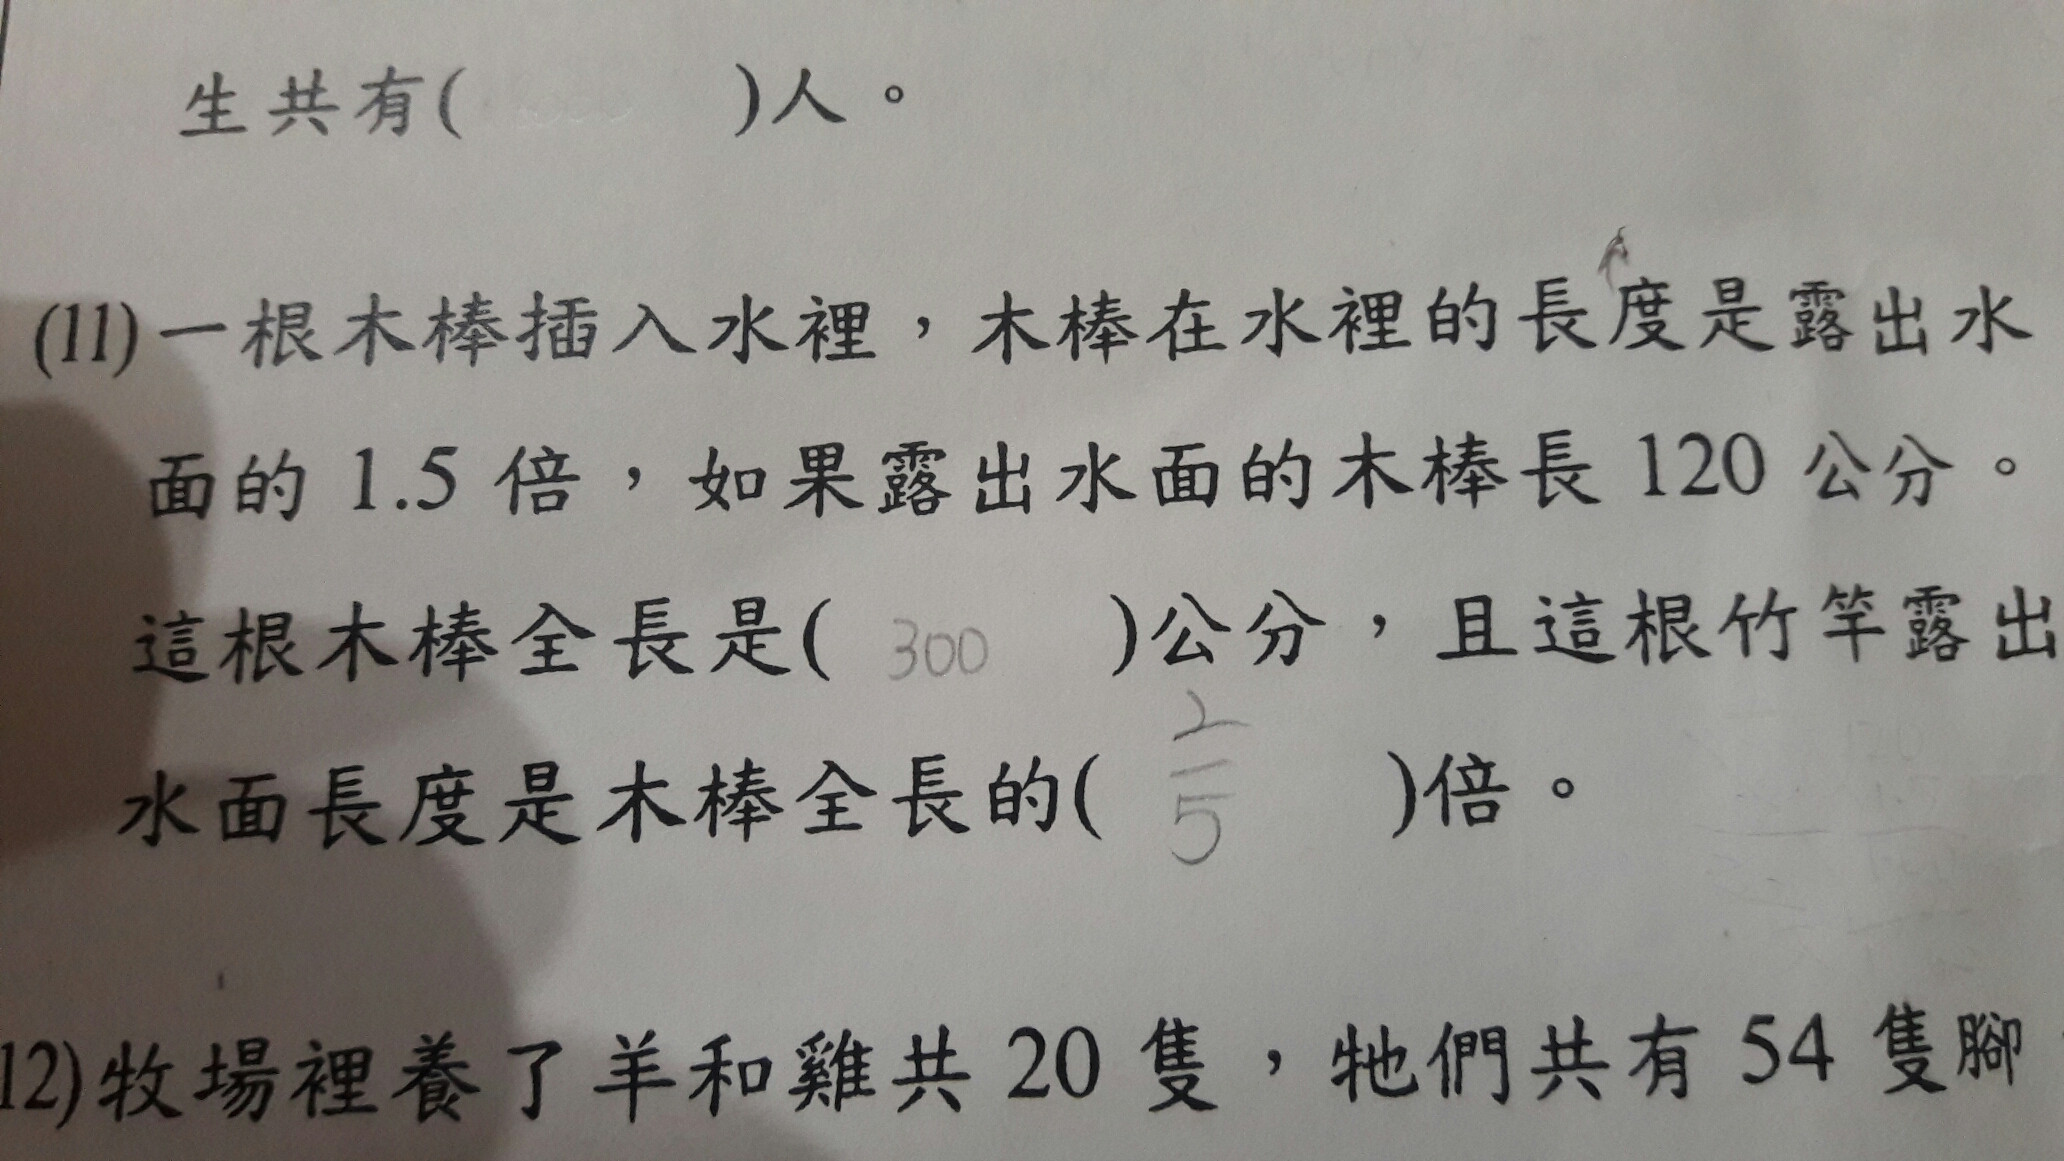 生共有( )人。
(11)一根木棒插入水裡，木棒在水裡的長度是露出水
面的 1.5 倍，如果露出水面的木棒長 120 公分。
這根木棒全長是( 300 )公分，且這根竹竿露出
水面長度是木棒全長的( 2/5 )倍。
12)牧場裡養了羊和雞共 20 隻，牠們共有 54 隻腳